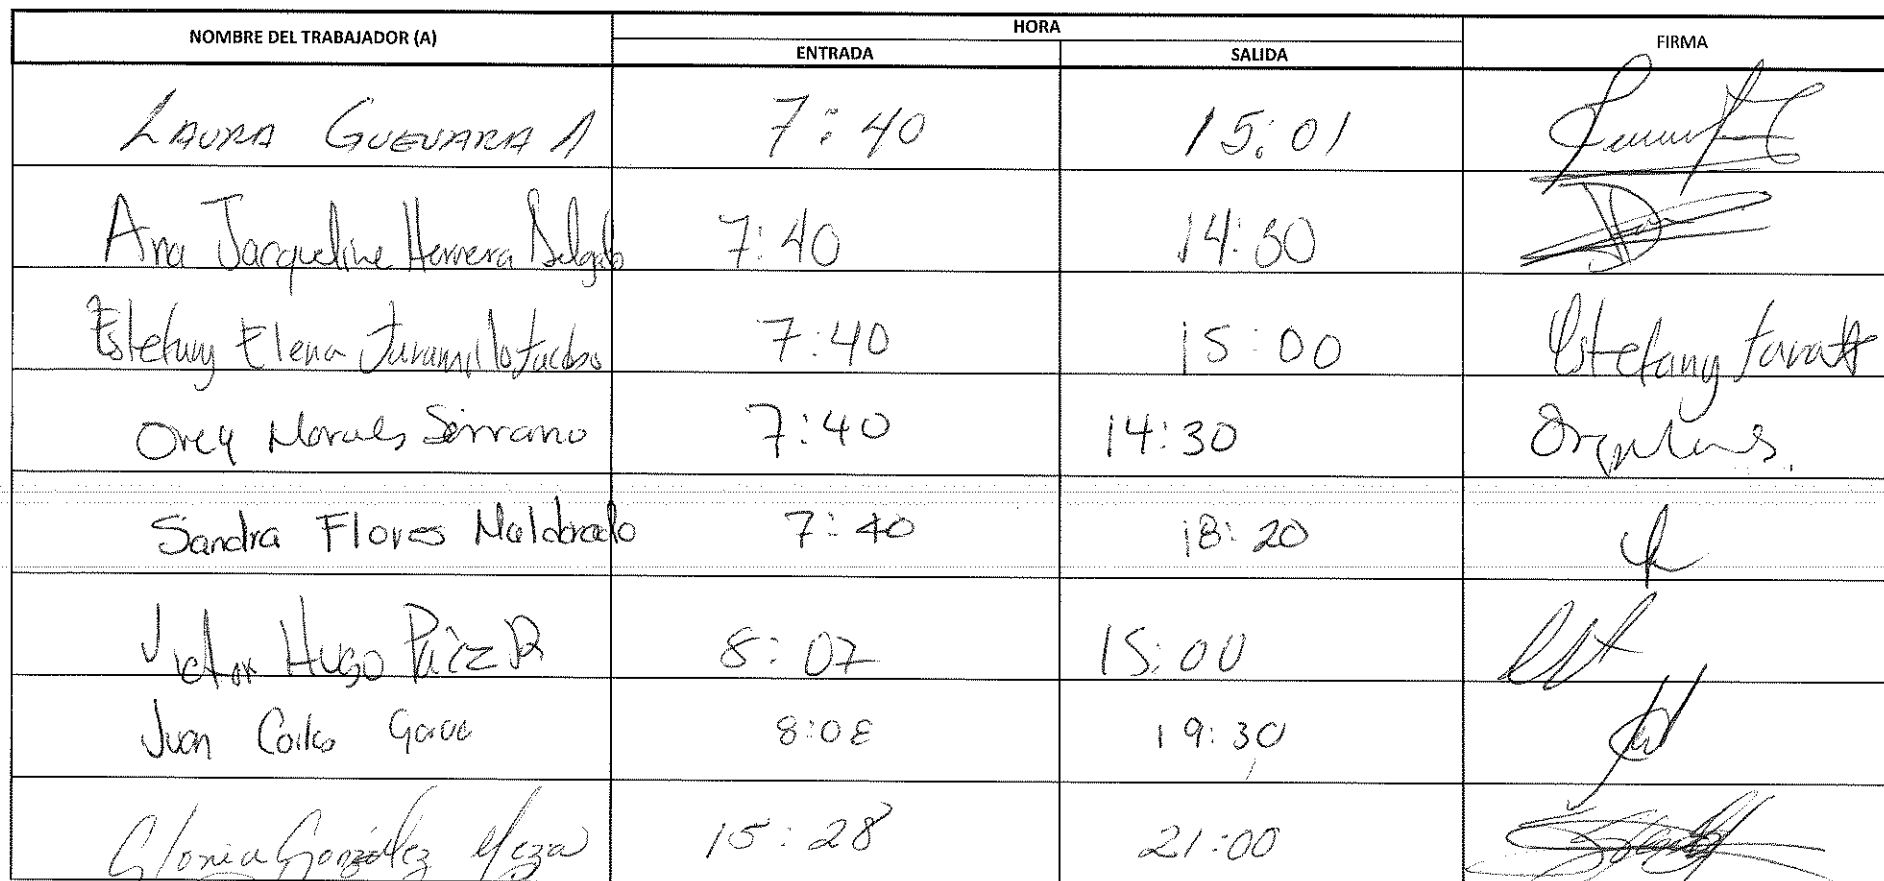 NOMBRE DEL TRABAJADOR (A) HORA FIRMA
ENTRADA SALIDA
LAURA GUEVARA A 7:40 15:01
Ana Jacqueline Herrera Delgado 7:40 14:30
Estefany Elena Juramillo 7:40 15:00 Estefany
Orey Morales Serrano 7:40 14:30
Sandra Flores Maldonado 7:40 18:20
Victor Hugo Paez R 8:07 15:00
Juan Carlos 8:08 19:30
Gloria González Meza 15:28 21:00